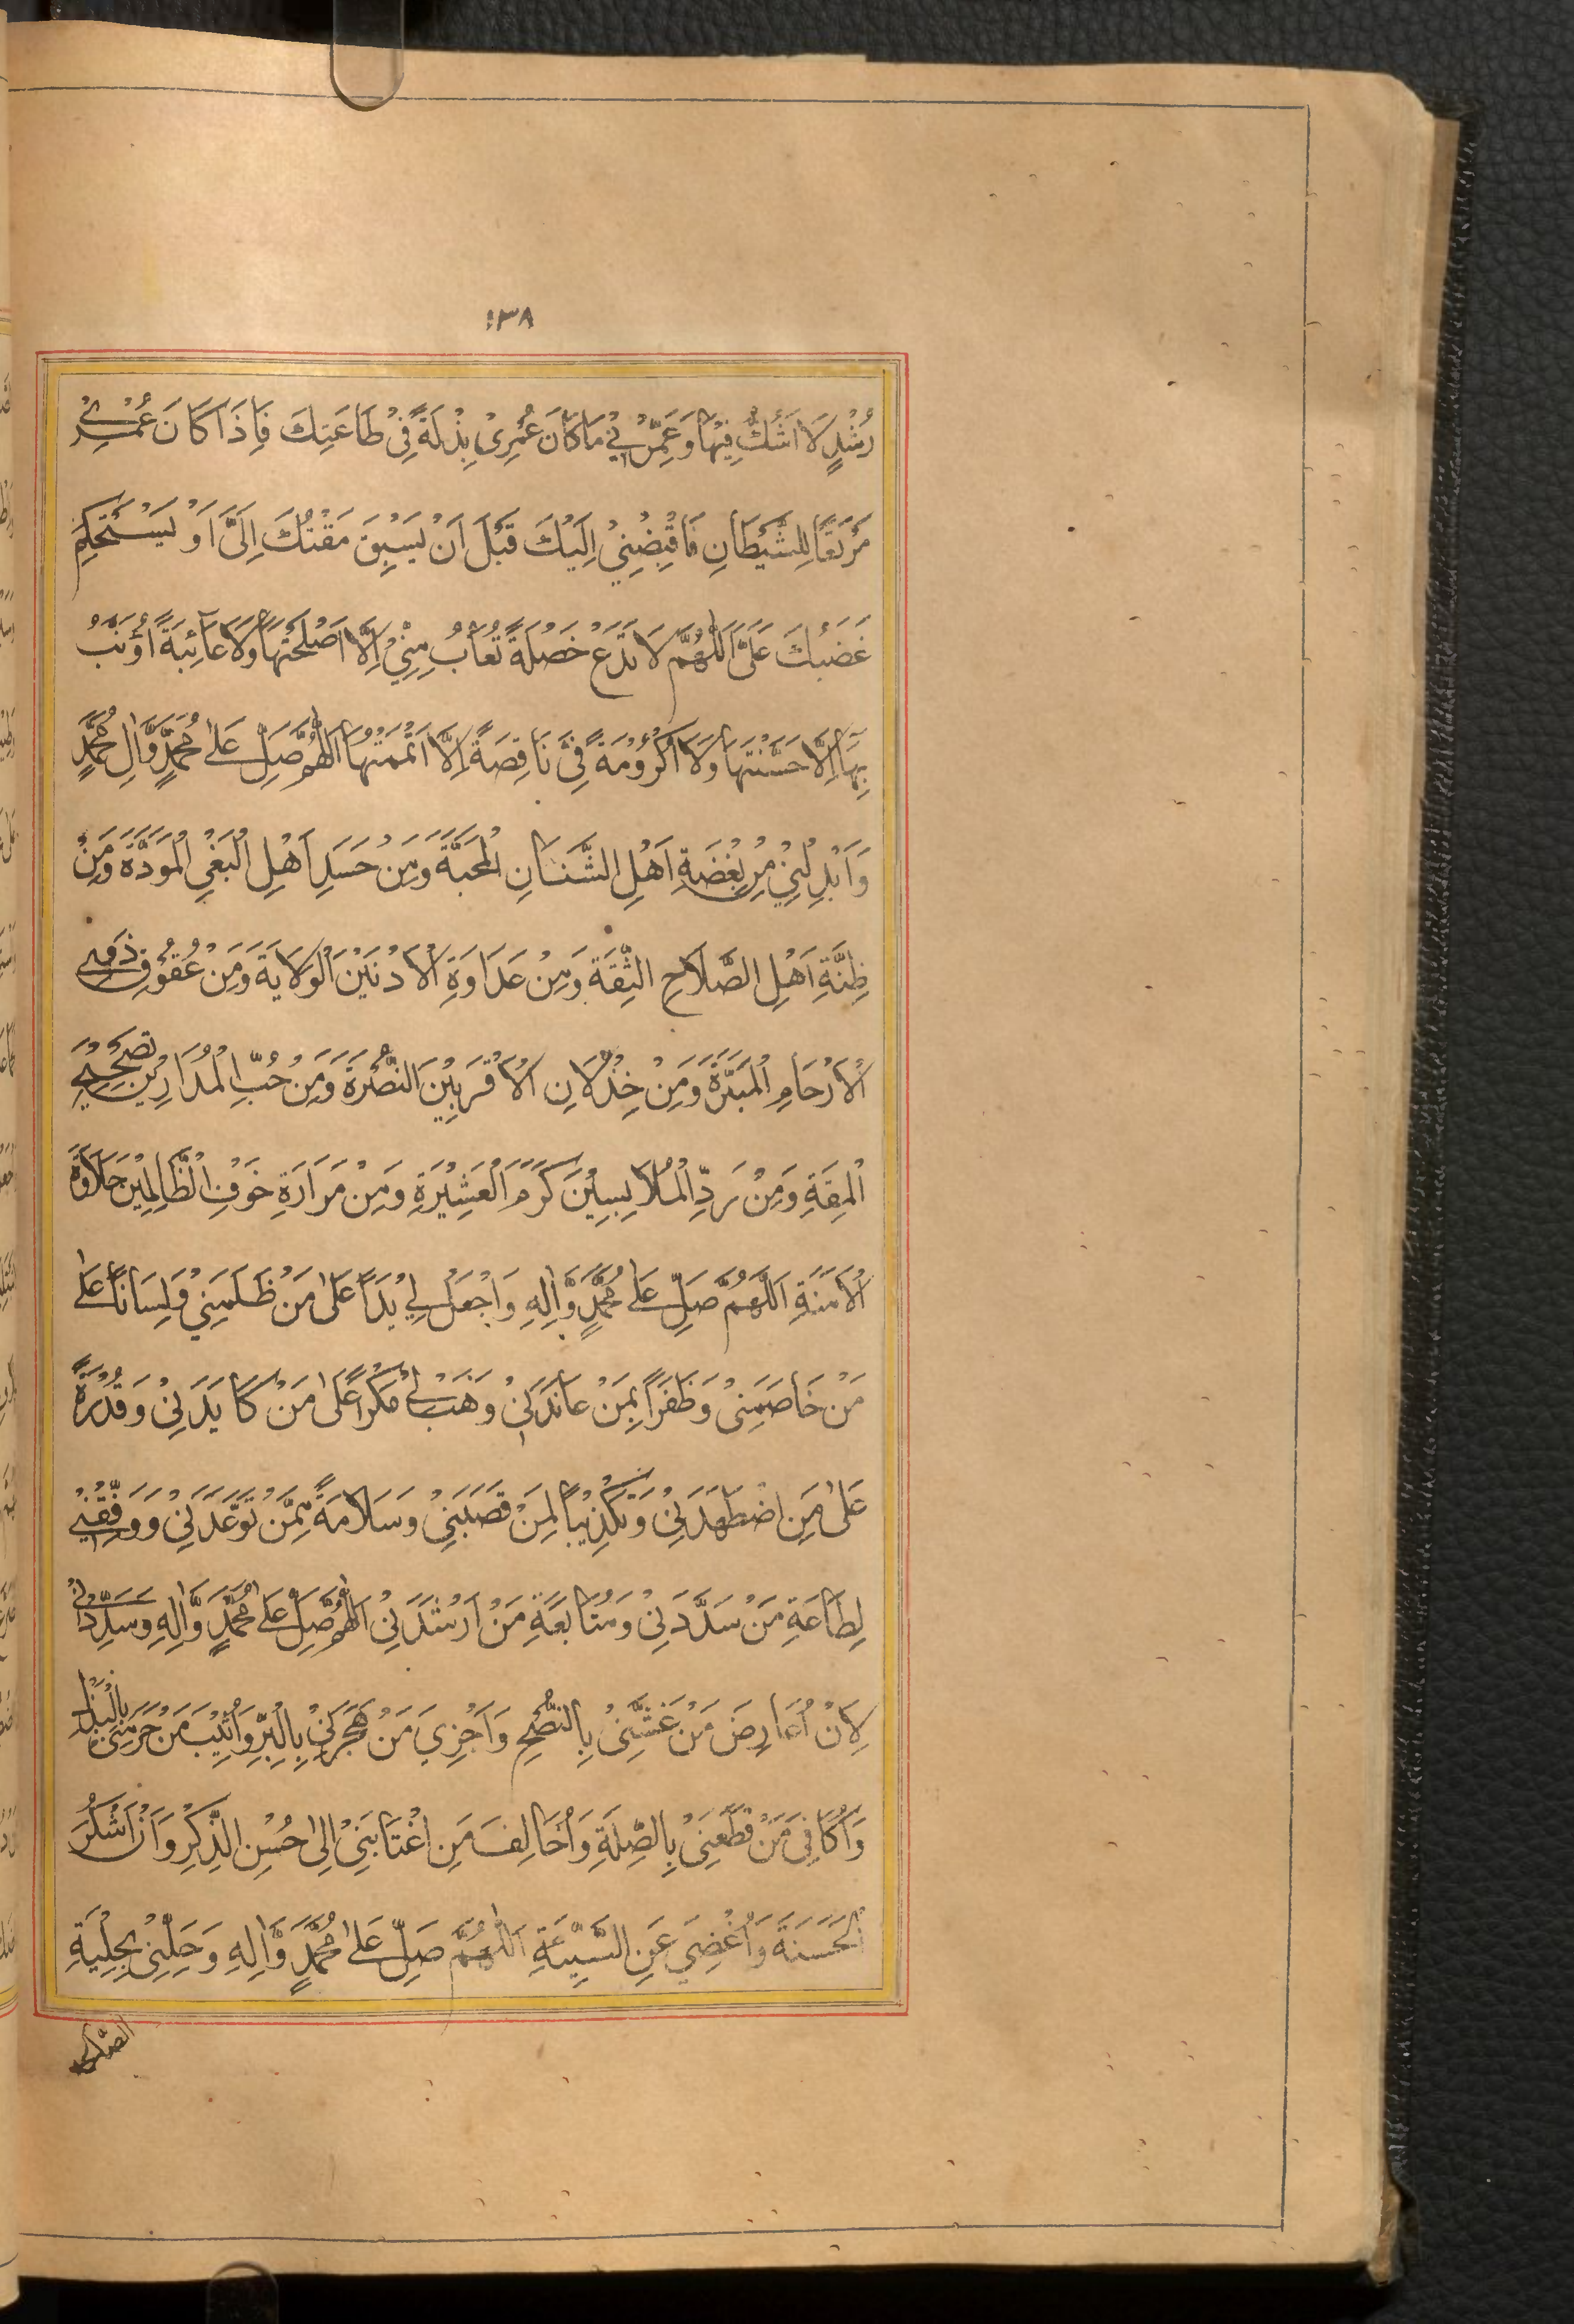 ١٣٨
رُشْدٍ لَا اَشُكُّ فِيْهَا وَعَمِّرْنِيْ مَا كَانَ عُمْرِىْ بِذْلَةً فِىْ طَاعَتِكَ فَاِذَا كَانَ عُمْرِيْ
مَرْتَعًا لِلشَّيْطَانِ فَاقْبِضْنِيْ اِلَيْكَ قَبْلَ اَنْ يَسْبِقَ مَقْتُكَ اِلَىَّ اَوْ يَسْتَحْكِمَ
غَضَبُكَ عَلَىَّ اَللّٰهُمَّ لَا تَدَعْ خَصْلَةً تُعَابُ مِنِّيْ اِلَّا اَصْلَحْتَهَا وَلَا عَآئِبَةً اُؤَنَّبُ
بِهَا اِلَّا حَسَّنْتَهَا وَلَا اُكْرُوْمَةً فِىَّ نَاقِصَةً اِلَّا اَتْمَمْتَهَا اَللّٰهُمَّ صَلِّ عَلٰى مُحَمَّدٍ وَّاٰلِ مُحَمَّدٍ
وَاَبْدِلْنِيْ مِنْ بِغْضَةِ اَهْلِ الشَّنَاٰنِ الْمَحَبَّةَ وَمِنْ حَسَدِ اَهْلِ الْبَغْيِ الْمَوَدَّةَ وَمِنْ
ظِنَّةِ اَهْلِ الصَّلَاحِ الثِّقَةَ وَمِنْ عَدَاوَةِ الْاَدْنَيْنَ الْوَلَايَةَ وَمِنْ عُقُوْقِ ذَوِى
الْاَرْحَامِ الْمَبَرَّةَ وَمِنْ خِذْلَانِ الْاَقْرَبِيْنَ النُّصْرَةَ وَمِنْ حُبِّ الْمُدَارِيْنَ تَصْحِيْحَ
الْمِقَةِ وَمِنْ رَدِّ الْمُلَابِسِيْنَ كَرَمَ الْعَشِيْرَةِ وَمِنْ مَرَارَةِ خَوْفِ الظَّالِمِيْنَ حَلَاوَةَ
الْاَمَنَةِ اَللّٰهُمَّ صَلِّ عَلٰى مُحَمَّدٍ وَّاٰلِهٖ وَاجْعَلْ لِيْ يَدًا عَلٰى مَنْ ظَلَمَنِيْ وَلِسَانًا عَلٰى
مَنْ خَاصَمَنِىْ وَظَفَرًا بِمَنْ عَانَدَنِىْ وَهَبْ لِىْ مَكْرًا عَلٰى مَنْ كَايَدَنِىْ وَقُدْرَةً
عَلٰى مَنِ اضْطَهَدَنِىْ وَتَكْذِيْبًا لِمَنْ قَصَبَنِىْ وَسَلَامَةً مِّمَّنْ تَوَعَّدَنِىْ وَوَفِّقْنِىْ
لِطَاعَةِ مَنْ سَدَّدَنِىْ وَمُتَابَعَةِ مَنْ اَرْشَدَنِىْ اَللّٰهُمَّ صَلِّ عَلٰى مُحَمَّدٍ وَّاٰلِهٖ وَسَدِّدْنِىْ
لِاَنْ اُعَارِضَ مَنْ غَشَّنِىْ بِالنُّصْحِ وَاَجْزِيَ مَنْ هَجَرَنِىْ بِالْبِرِّ وَاُثِيْبَ مَنْ حَرَمَنِىْ بِالْبَذْلِ
وَاُكَافِىَ مَنْ قَطَعَنِىْ بِالصِّلَةِ وَاُخَالِفَ مَنِ اغْتَابَنِىْ اِلٰى حُسْنِ الذِّكْرِ وَاَنْ اَشْكُرَ
الْحَسَنَةَ وَاُغْضِيَ عَنِ السَّيِّئَةِ اَللّٰهُمَّ صَلِّ عَلٰى مُحَمَّدٍ وَّاٰلِهٖ وَحَلِّنِىْ بِحِلْيَةِ
الصّٰلحين